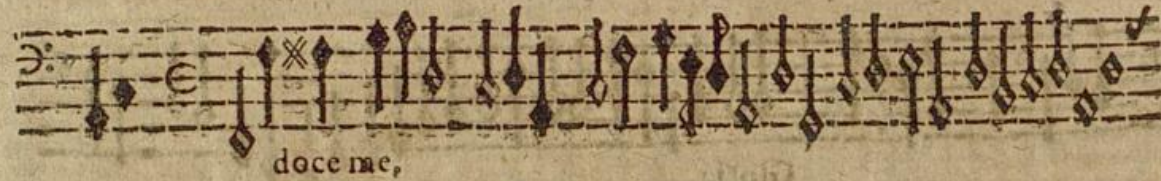 doce me,